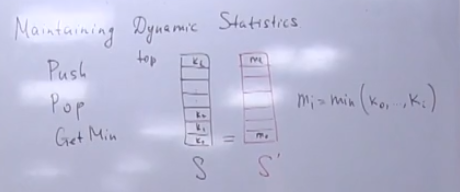 Maintaining Dynamic Statistics
Push
Pop
GetMin
top
kᵢ
k₂
k₁
k₀
S
=
mᵢ
m₀
S'
mᵢ = min(k₀,..,kᵢ)